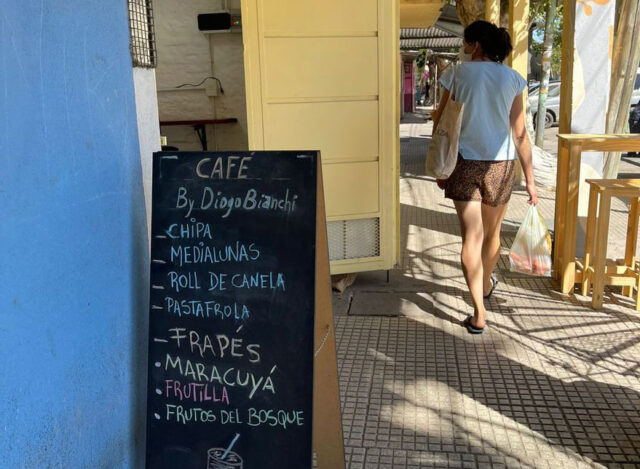 CAFÉ
By Diogo Bianchi
- CHIPA
- MEDIALUNAS
- ROLL DE CANELA
- PASTAFROLA
- FRAPÉS
• MARACUYÁ
• FRUTILLA
• FRUTOS DEL BOSQUE